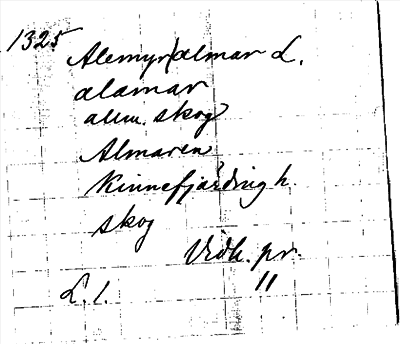 1325
Alemyr/almar L.
alamar
allm. skog
Almaren
Kinnefjärding h.
skog
Vidh. pr.
L. l. "